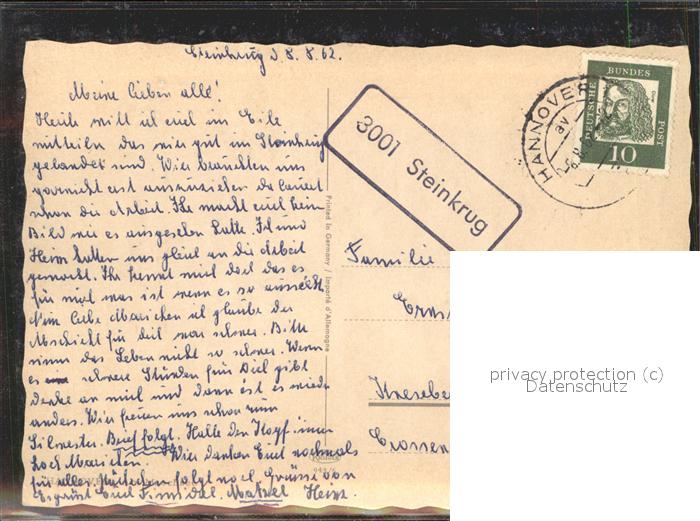 Steinkrug d 8. 8. 62.
Meine lieben alle!
Heute will ich euch in Eile
mitteilen das wir gut in Steinkrug
gelandet sind. Wir brauchten uns
garnicht erst auszuziehen da lauert
schon die Arbeit. Ihr macht euch kein
Bild wie es ausgesehen hatte. Ich und
Heinz hatten uns gleich an die Arbeit
gemacht. Ihr kennt mich doch das es
für mich was ist wenn es so aussieht
Mariechen ich glaube der
Abschied für dich war schwer. Bitte
nimm das Leben nicht so schwer. Wenn
es schwere Stunden für Dich gibt
denke an mich und dann ist es wieder
anders. Wir freuen uns schon zum
Silvester. Brief folgt. Halte den Kopf immer
hoch Mariechen. Wir danken Euch nochmals
für alles. folgt noch Grüsse von
Es grüsst Euch Heinz.
3001 Steinkrug
HANNOVER
DEUTSCHE BUNDESPOST
10
Printed in Germany / Importé d'Allemagne
Familie
Crossen
privacy protection (c)
Datenschutz